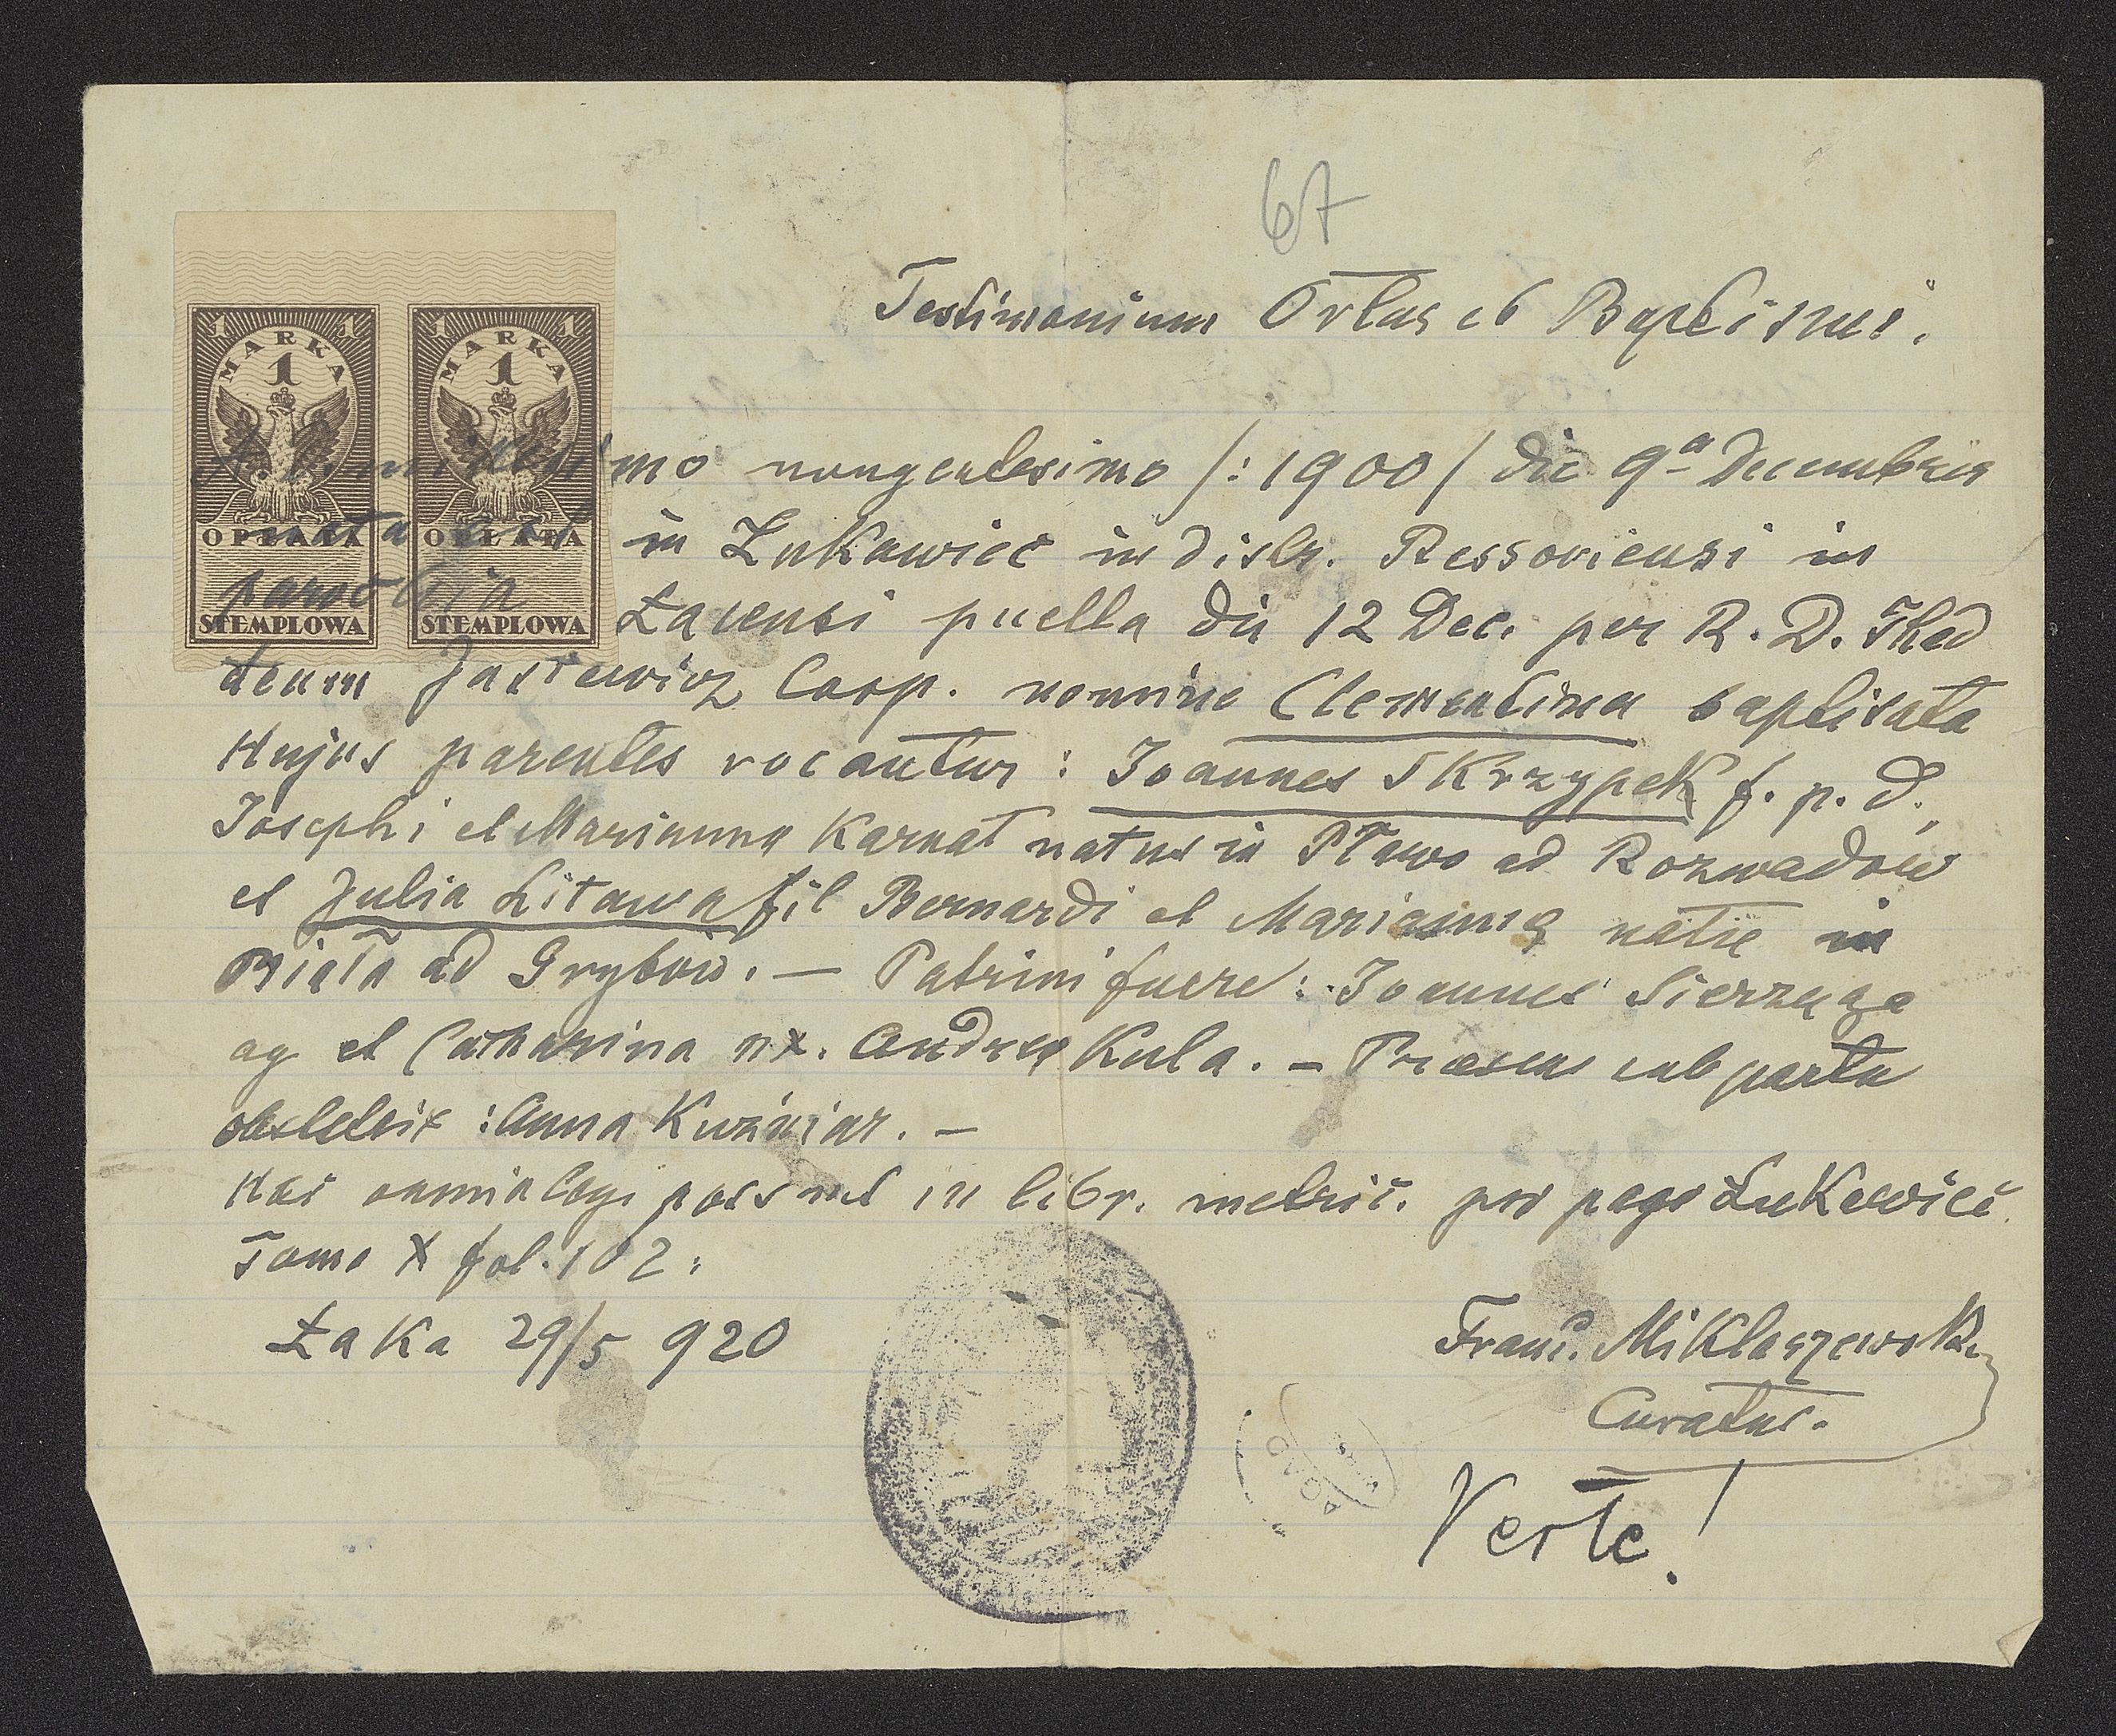 67
Testimonium Ortus et Baptismi.
1 MARKA 1 1 MARKA 1
1 1
OPŁATA OPŁATA
STEMPLOWA STEMPLOWA
A. D. millesimo nongentesimo /:1900/ die 9a Decembris
nata est in Łukawiec in distr. Ressoviensi in
parochia Łacensi puella die 12 Dec. per R. D. Thad
deum Jastewicz Coop. nomine Clementina baptisata
Hujus parentes vocantur: Joannes Skrzypek f. p. d.
Josephi et Marianna Karnat natus in Pławo ad Rozwadów
et Julia Litawa fil Bernardi et Marianna natæ in
Biała ad Grybów. — Patrini fuere: Joannes Sierzęga
ag et Catharina ux. Andreæ Kula. — Præsens sub partu
obstetrix: Anna Kuźniar. —
Hæc omnia legi possunt in libr. metric. pro pago Łukawiec
Tomo X fol. 102.
Łąka 29/5 920
Franc. Miklaszewski
Curatus.
AGAD
Verte!